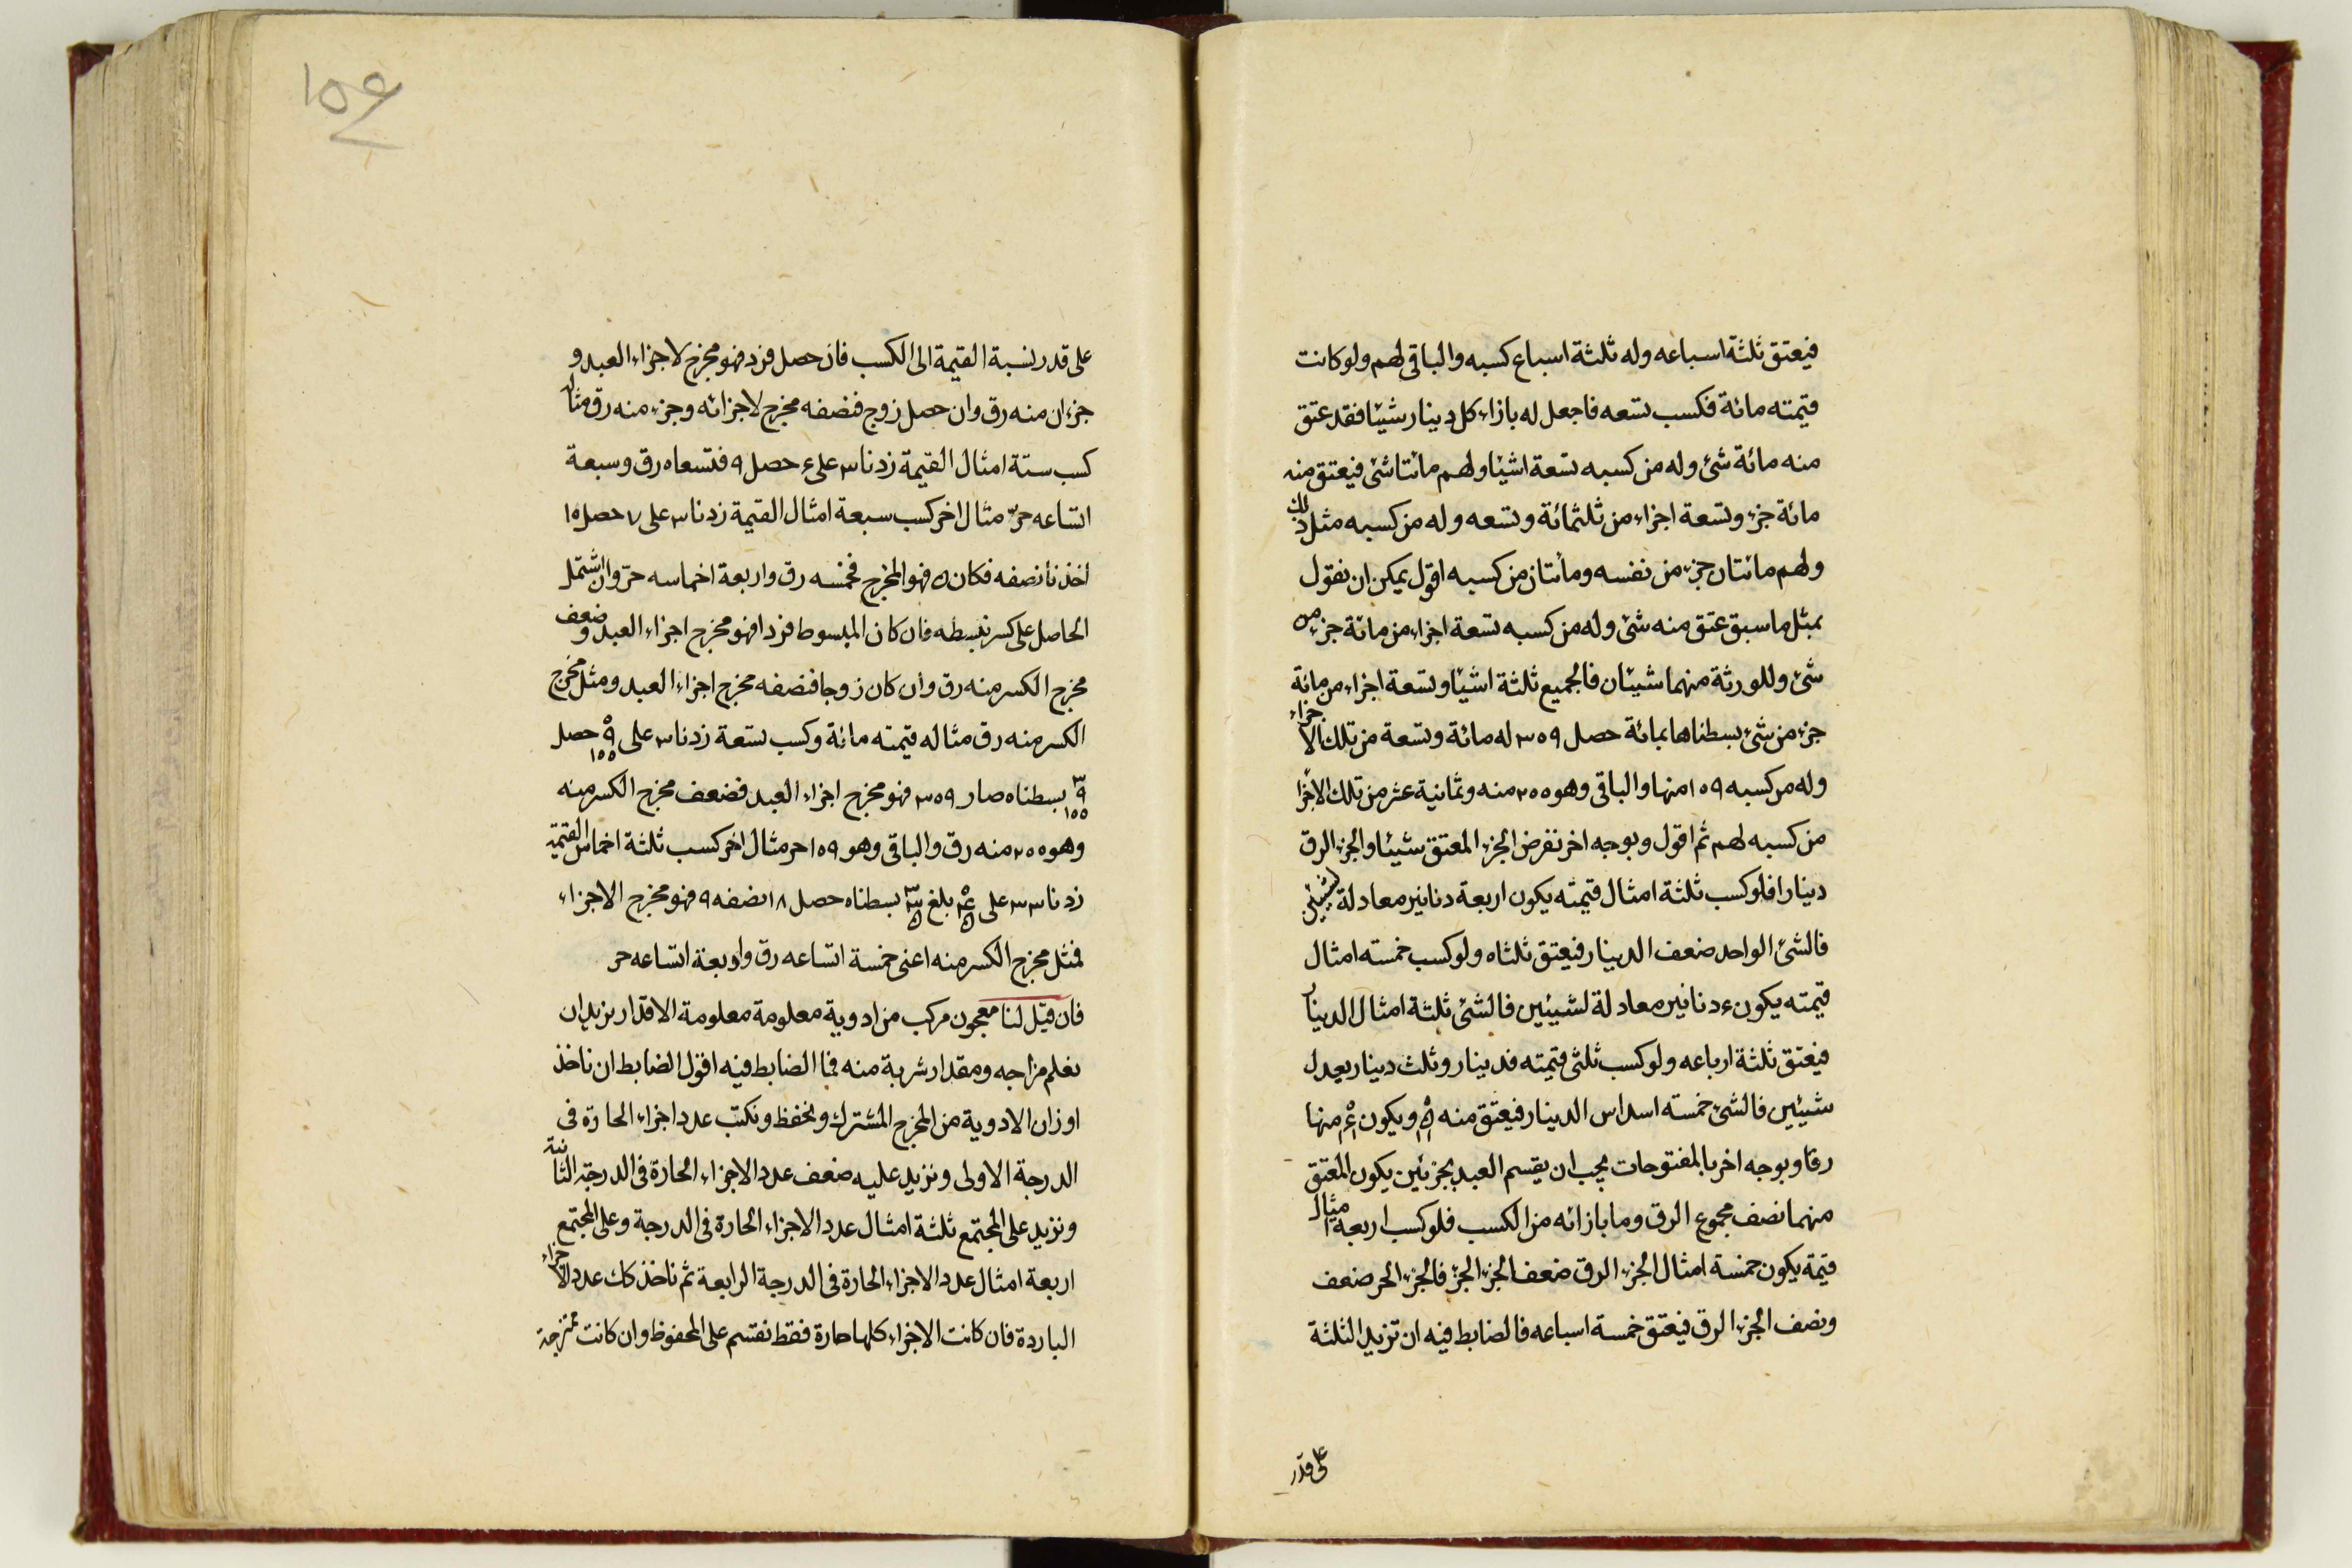 فيعتق ثلثة اسباعه وله ثلثة اسباع كسبه والباقى لهم ولو كانت
قيمته مائة فكسب تسعه فاجعل له بازاء كل دينار شيئا فقد عتق
منه مائة شئ وله من كسبه تسعة اشيا ولهم مائتا شئ فيعتق منه
مائة جزء وتسعة اجزاء من ثلثمائة وتسعه وله من كسبه مثل ذلك
ولهم مائتان جزء من نفسه ومأتان من كسبه اقول يمكن ان نقول
بمثل ما سبق عتق منه شئ وله من كسبه تسعة اجزاء من مائة جزء من
شئ وللورثة منهما شيئان فالجميع ثلثة اشيا وتسعة اجزاء من مائة
جزء من شئ بسطناها بمائة حصل ٣٥٩ له مائة وتسعة من تلك الاجزاء
وله من كسبه ١٥٩ منها والباقى وهو ٢٥٥ منه وثمانية عشر من تلك الاجزا
من كسبه لهم ثم اقول وبوجه اخر نفرض الجزء المعتق شيئا والجزء الرق
دينارا فلو كسب ثلثة امثال قيمته يكون اربعة دنانير معادلة لشيئين
فالشئ الواحد ضعف الدينار فيعتق ثلثاه ولو كسب خمسته امثال
قيمته يكون ٤ دنانير معادلة لشيئين فالشئ ثلثة امثال الدينار
فيعتق ثلثة ارباعه ولو كسب ثلثى قيمته فدينار وثلث دينار يعدل
شيئين فالشئ خمسته اسداس الدينار فيعتق منه ويكون منها
رقا وبوجه اخر بالمفتوحات يجب ان يقسم العبد بجزئين يكون المعتق
منهما نصف مجموع الرق وما بازائه من الكسب فلو كسب اربعة امثال
قيمة يكون خمسة امثال الجزء الرق ضعف الجزء الجزء فالجزء الحر ضعف
ونصف الجزء الرق فيعتق خمسة اسباعه فالضابط فيه ان تزيد الثلثة
على قدر
على قدر نسبة القيمة الى الكسب فان حصل فرد فهو مخرج لاجزاء العبد و
جزءان منه رق وان حصل زوج فنصفه مخرج لاجزائه وجزء منه رق مثاله
كسب ستة امثال القيمة زدنا ٣ على ٤ حصل ٩ فتسعاه رق وسبعة
اتساعه حرّ مثال اخر كسب سبعة امثال القيمة زدنا ٣ على ٧ حصل ١٥
أخذنا نصفه فكان ٥ فهو المخرج فخمسه رق واربعة اخماسه حرّ وان اشتمل
الحاصل على كسر نبسطه فان كان المبسوط فردا فهو مخرج اجزاء العبد وضعف
مخرج الكسر منه رق وان كان زوجا فنصفه مخرج اجزاء العبد ومثل مخرج
الكسر منه رق مثاله قيمته مائة وكسب تسعة زدنا ٣ على ٩ ١٥٥ حصل
٣ ٩ ١٥٥ بسطناه صار ٣٥٩ فهو مخرج اجزاء العبد فضعف مخرج الكسر منه
وهو ٢٥٥ منه رق والباقى وهو ١٥٩ حر مثال اخر كسب ثلثة اخماس القيمة
زدنا ٣ على بلغ بسطناه حصل ١٨ نصفه ٩ فهو مخرج الاجزاء
فمثل مخرج الكسر منه اعنى خمسة اتساعه رق واربعة اتساعه حر
فان قيل لنا معجون مركب من ادوية معلومة معلومة الاقدار نريد ان
نعلم مزاجه ومقدار شربة منه فما الضابط فيه اقول الضابط ان ناخذ
اوزان الادوية من المخرج المشترك ونحفظ ونكتب عدد اجزاء الحارة فى
الدرجة الاولى ونزيد عليه ضعف عدد الاجزاء الحارة فى الدرجة الثانية
ونزيد على المجتمع ثلثة امثال عدد الاجزاء الحارة فى الدرجة وعلى المجتمع
اربعة امثال عدد الاجزاء الحارة فى الدرجة الرابعة ثم ناخذ كك عدد الاجزاء
الباردة فان كانت الاجزاء كلها حارة فقط نقسم على المحفوظ وان كانت ممتزجة